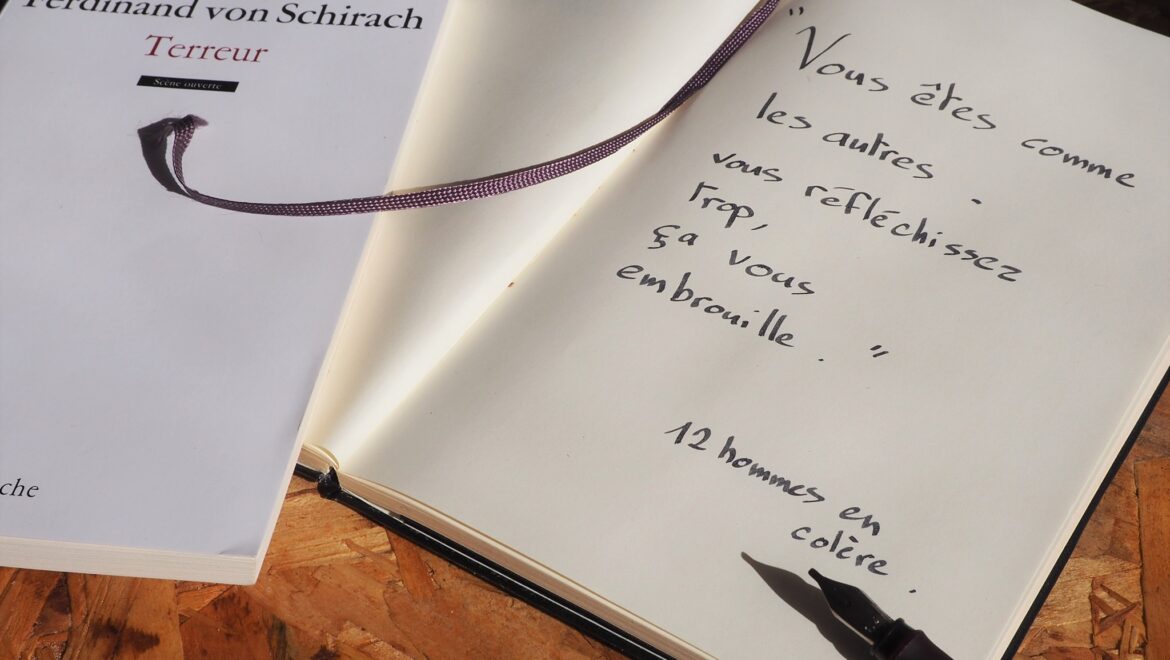 Ferdinand von Schirach
Terreur
Scène ouverte
che
"Vous êtes comme
les autres.
vous réfléchissez
Trop,
ça vous
embrouille. "
12 hommes en
colère.